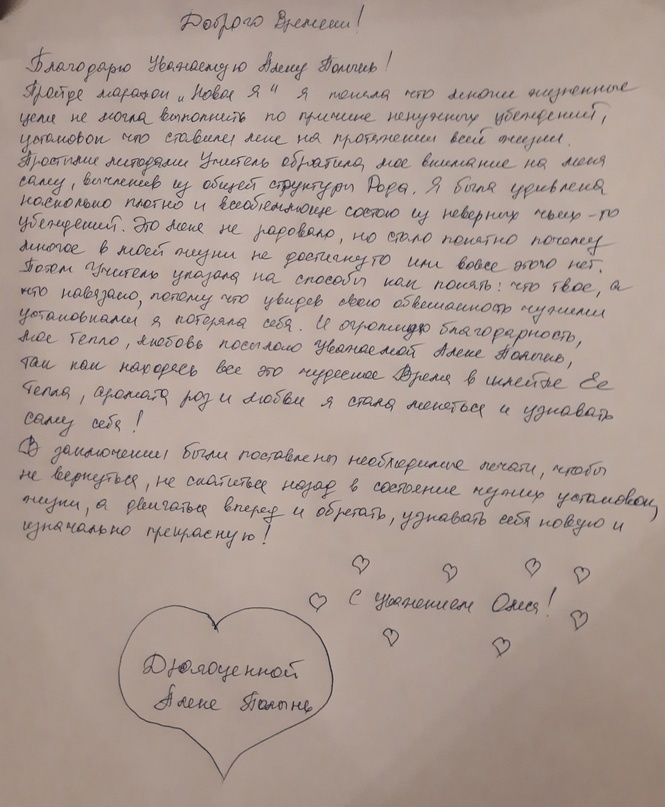 Доброго Времени!
Благодарю Уважаемую Алену Полынь!
Пройдя марафон „Новая Я" я поняла что многие жизненные
цели не могла выполнить по причине ненужных убеждений,
установок что ставили мне на протяжении всей жизни.
Простыми методами Учитель обратила мое внимание на меня
саму, вычленив из общей структуры Рода. Я была удивлена
насколько плотно и всеобемлюще состою из неверных чьих-то
убеждений. Это меня не радовало, но стало понятно почему
многое в моей жизни не достигнуто или вовсе этого нет.
Потом Учитель указала на способы как понять: что твое, а
что навязано, потому что увидев свою обвешанность чужими
установками я потеряла себя. И огромную благодарность,
мое тепло, любовь посылаю Уважаемой Алене Полынь,
так как находясь все это чудесное Время в шлейфе Ее
Тепла, аромата роз и любви я стала меняться и узнавать
саму себя!
В заключении были поставлены необходимые печати, чтобы
не вернуться, не скатиться назад в состояние чужих установок,
жизни, а двигаться вперед и обретать, узнавать себя новую и
изначально прекрасную!
С уважением Олеся!
Драгоценной
Алене Полынь